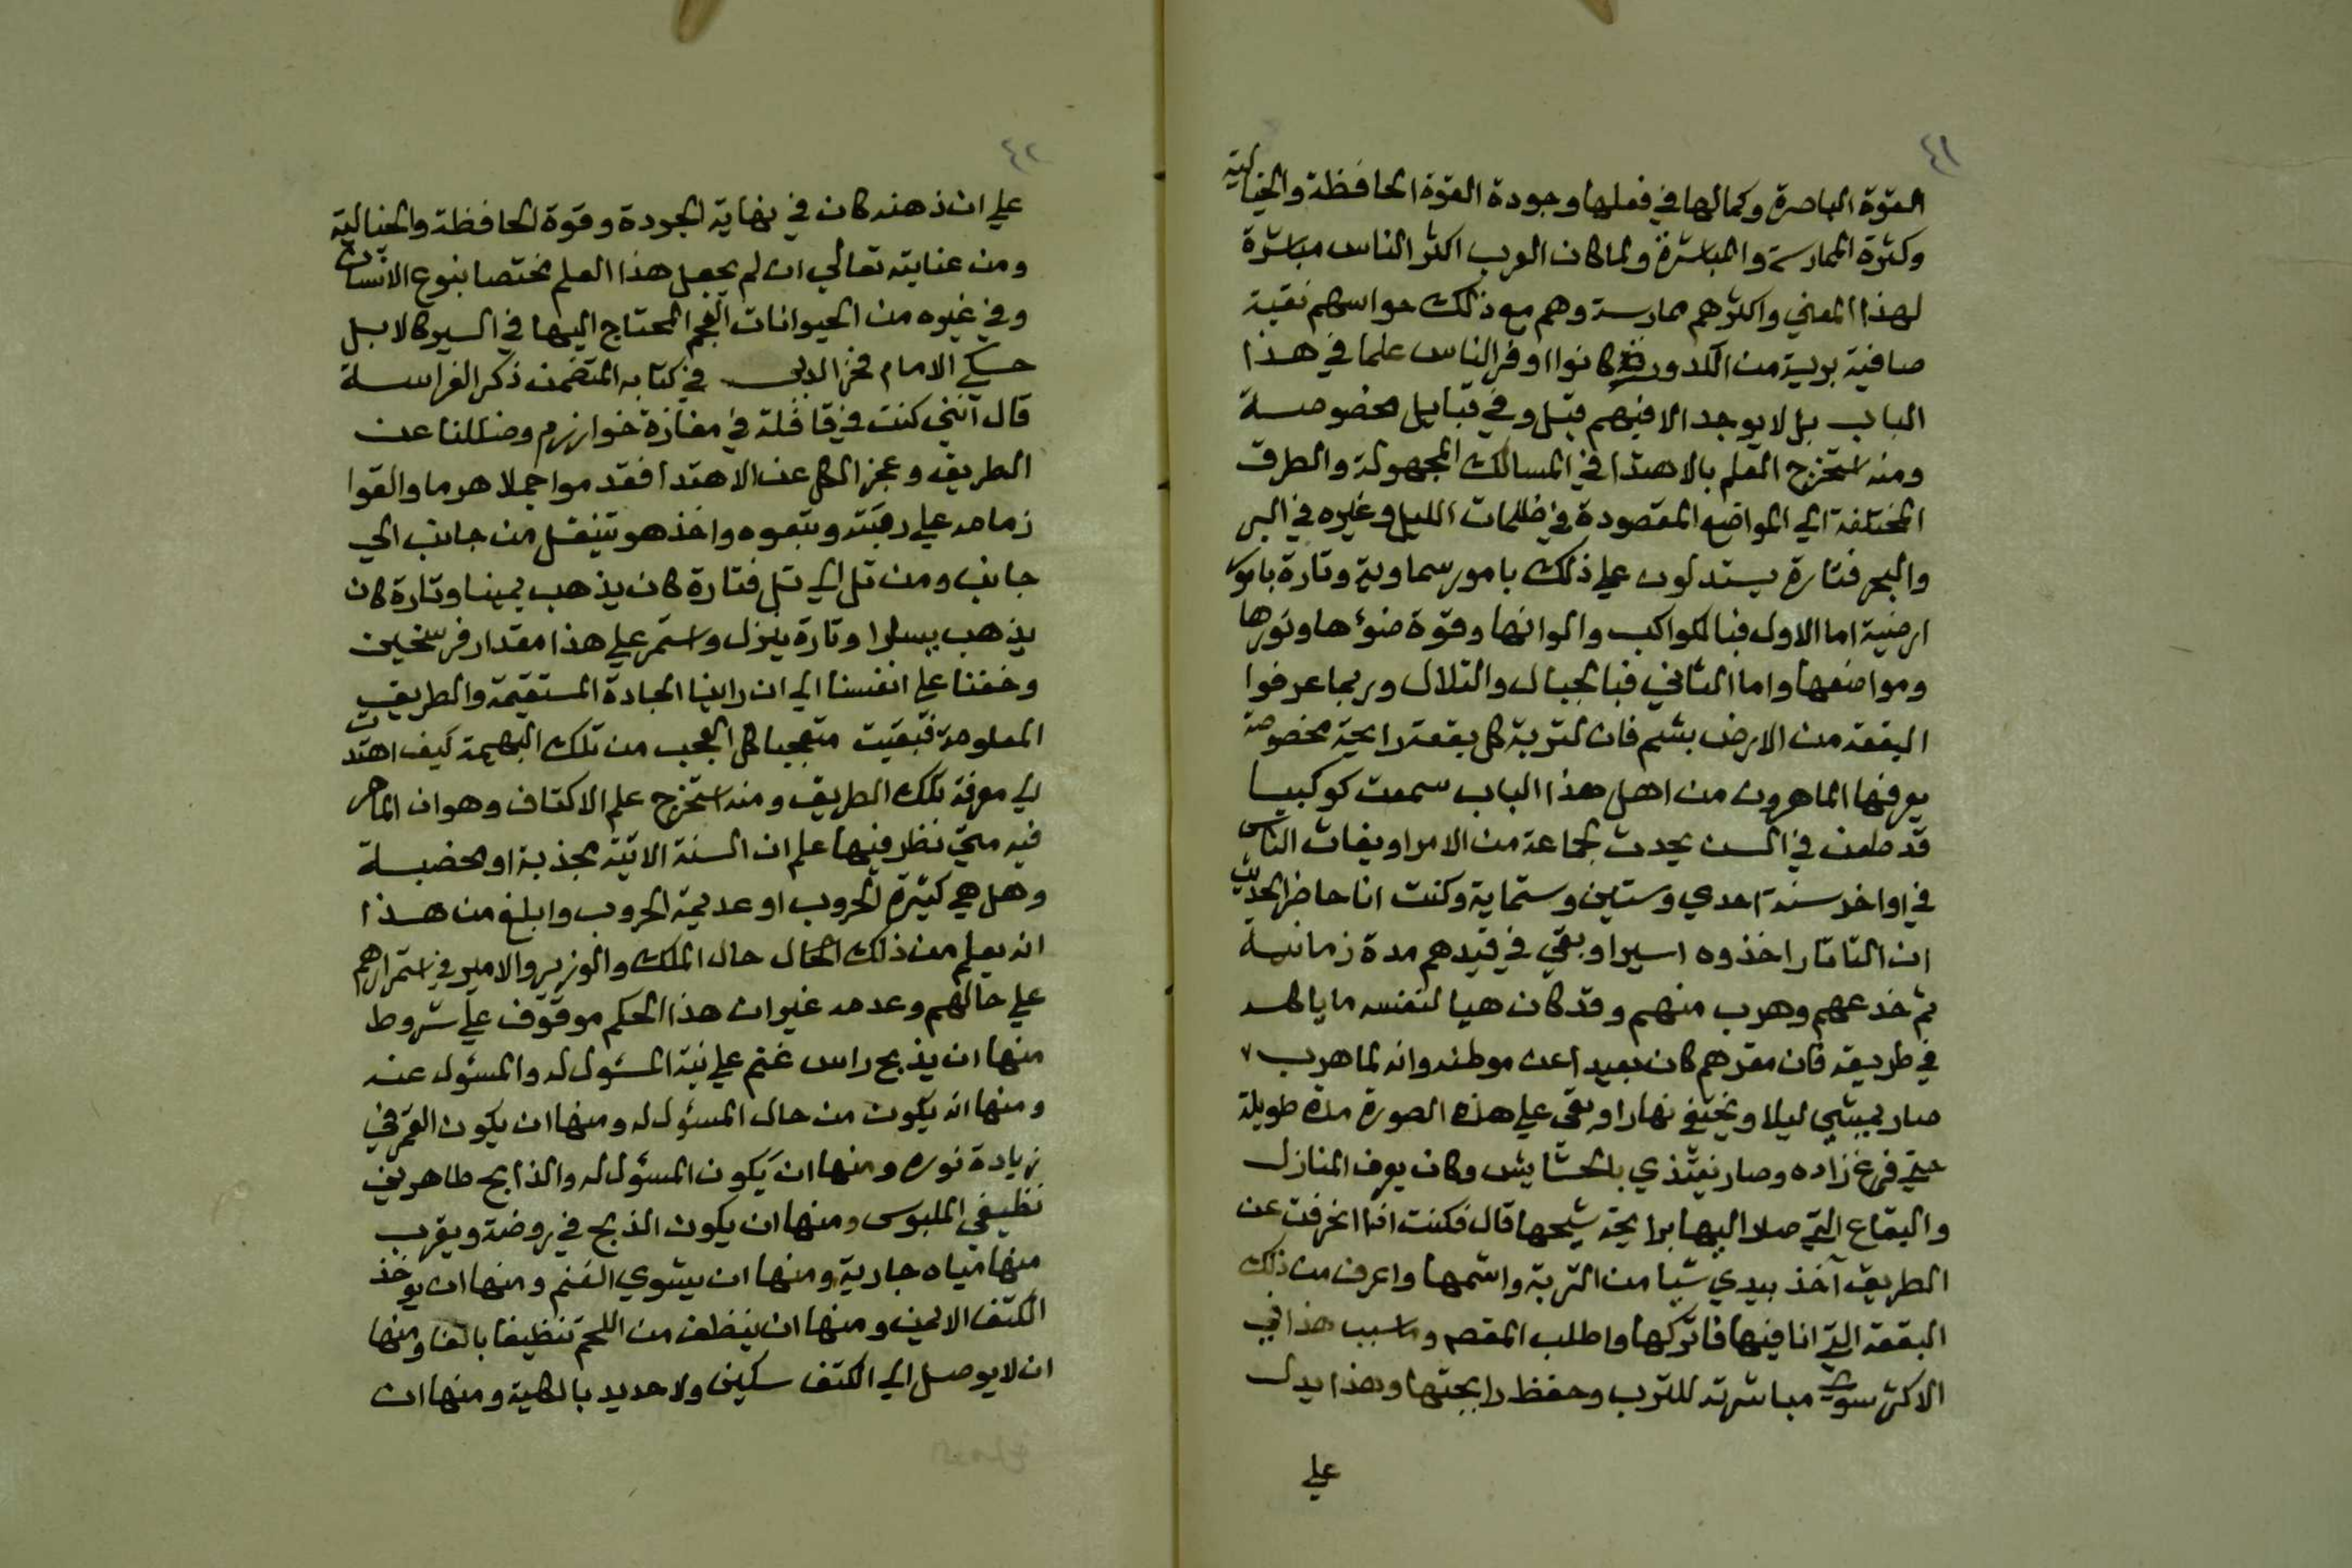 ٤١
القوة الباصرة وكمالها في فعلها وجودة القوة الحافظة والخيالية
وكثرة الممارسة والمباشرة ولما كان العرب اكثر الناس مباشرة
لهذا المعني واكثرهم ممارسة وهم مع ذلك حواسهم نقية
صافية برية من الكدورة كانوا اوفر الناس علما في هذا
الباب بل لا يوجد الا فيهم قبل وفي قبايل مخصوصة
ومنه استخرج العلم بالاهتدا في المسالك المجهولة والطرق
المختلفة الي المواضع المقصودة في ظلمات الليل وغيره في البر
والبحر فتارة يستدلون علي ذلك بامور سماوية وتارة بامور
ارضية اما الاول فبالكواكب والوانها وقوة ضوءها ونورها
ومواضعها واما الثاني فبالجبال والتلال وربما عرفوا
البقعة من الارض بشم فان لتربة كل بقعة رايحة مخصوصة
يعرفها الماهرون من اهل هذا الباب سمعت كوكبيا
قد طعن في السن يحدث لجماعة من الامرا ويفات الناس
في اواخر سنة احدي وستين وستماية وكنت انا حاضر الحديث
ان التاتار اخذوه اسيرا وبقي في قيدهم مدة زمانية
ثم خدعهم وهرب منهم وقد كان هيا لنفسه ما ياكله
في طريقه فان مقرهم كان بعيدا عن موطنه وانه لما هرب
صار يمشي ليلا ويختفي نهارا وبقي علي هذه الصورة مدة طويلة
حتي فرغ زاده وصار يغتذي بالحشايش وكان يعرف المنازل
والبقاع التي صلا اليها برايحة شيحها قال فكنت اذا انحرفت عن
الطريق آخذ بيدي شيا من التربة واشمها واعرف من ذلك
البقعة التي انا فيها فاتركها واطلب المقصد وسبب هذا في
الاكثر سوي مباشرته للترب وحفظ رايحتها وهذا يدل
علي
٤٢
علي ان ذهنه كان في نهاية الجودة وقوة الحافظة والخيالية
ومن عنايته تعالي ان لم يجعل هذا العلم مختصا بنوع الانسان
وفي غيره من الحيوانات العجم المحتاج اليها في السير كالابل
حكي الامام فخر الدين في كتابه المتضمن ذكر الفراسة
قال انني كنت في قافلة في مفازة خوارزم وضللنا عن
الطريق وعجز الكل عن الاهتدا فقدموا جملا هرما والقوا
زمامه علي رقبته وتبعوه واخذ هو يتنقل من جانب الي
جانب ومن تل الي تل فتارة كان يذهب يمينا وتارة كان
يذهب يسارا وتارة ينزل واستمر علي هذا مقدار فرسخين
وخفنا علي انفسنا الي ان راينا الجادة المستقيمة والطريق
المعلومة فبقيت متعجبا كل العجب من تلك البهيمة كيف اهتدت
الي معرفة تلك الطريق ومنه استخرج علم الاكتاف وهو ان الماهر
فيه متي نظر فيها علم ان السنة الاتية مجذبة او مخضبة
وهل هي كثيرة الحروب او عديمة الحروب وابلغ من هذا
انه يعلم من ذلك الحال حال الملك والوزير والامير في استمرارهم
علي حالهم وعدمه غير ان هذا الحكم موقوف علي شروط
منها ان يذبح راس غنم علي نية المسئول له والمسئول عنه
ومنها انه يكون من حال المسئول له ومنها ان يكون القمر في
زيادة نوره ومنها ان يكون المسئول له والذابح طاهرين
نظيفي الملبوس ومنها ان يكون الذبح في روضة ويقرب
منها مياه جارية ومنها ان يشوي الغنم ومنها ان يوخذ
الكتف الايمن ومنها ان ينظف من اللحم تنظيفا بالغا ومنها
ان لا يوصل الي الكتف سكين ولا حديد بالكلية ومنها ان